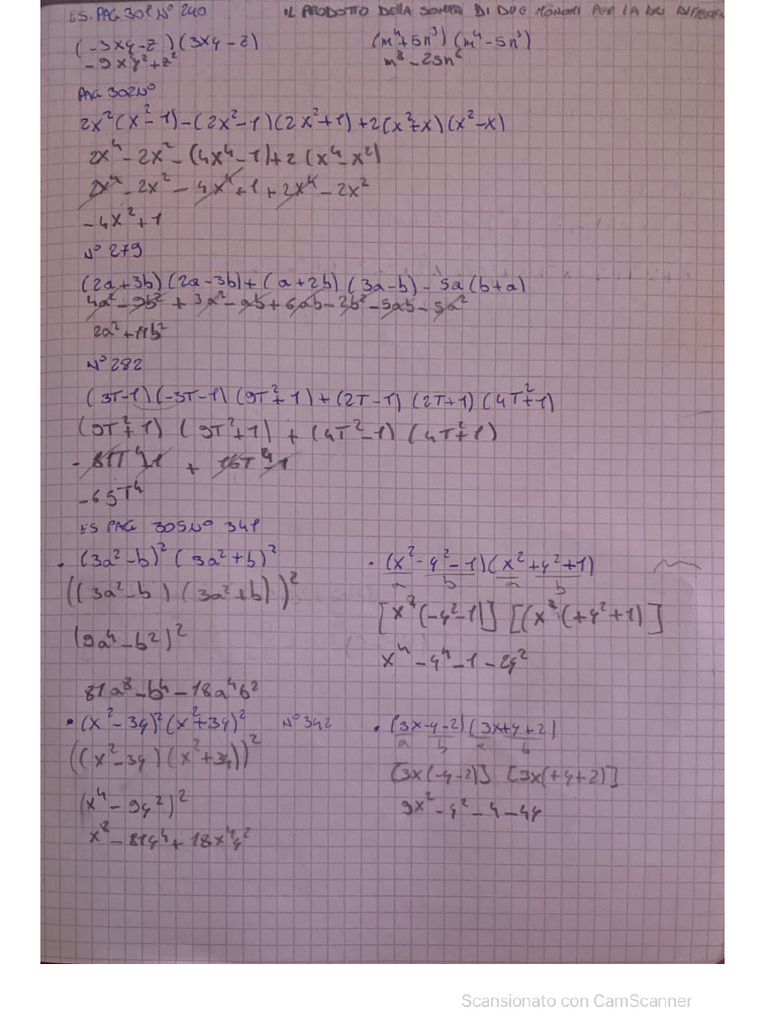 ES. PAG 301 N° 240 IL PRODOTTO DELLA SOMMA DI DUE MONOMI PER LA LORO DIFFEREN
(-3xy-z)(3xy-z) (m⁴+5n³)(m⁴-5n³)
-9xy²+z² m⁸-25n⁶
PAG 302N°
2x²(x²-1)-(2x²-1)(2x²+1)+2(x²+x)(x²-x)
2x⁴-2x²-(4x⁴-1)+2(x⁴-x²)
2x⁴-2x²-4x⁴+1+2x⁴-2x²
-4x²+1
N° 279
(2a+3b)(2a-3b)+(a+2b)(3a-b)-5a(b+a)
4a²-9b²+3a²-ab+6ab-2b²-5ab-5a²
2a²+11b²
N° 282
(3T-1)(-3T-1)(9T²+1)+(2T-1)(2T+1)(4T²+1)
(9T²+1)(9T²+1)+(4T²-1)(4T²+1)
-81T⁴+1 + 16T⁴-1
-65T⁴
ES PAG 305N° 341
• (3a²-b)²(3a²+b)² • (x²-y²-1)(x²+y²+1)
a b a b
((3a²-b)(3a²+b))² [x²(-y²-1)] [(x²(+y²+1)]
(9a⁴-b²)² x⁴-y⁴-1-2y²
81a⁸-b⁴-18a⁴b²
• (x²-3y)²(x²+3y)² N° 342 • (3x-y-2)(3x+y+2)
a b a b
((x²-3y)(x²+3y))² [3x(-y-2)] [3x(+y+2)]
(x⁴-9y²)² 9x²-y²-4-4y
x⁸-81y⁴+18x⁴y²
Scansionato con CamScanner